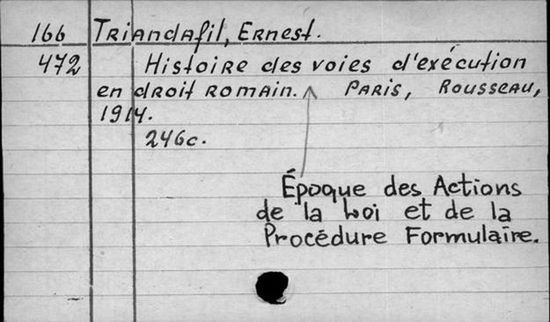 166 Triandafil, Ernest.
472 Histoire des voies d'exécution
en droit romain. Paris, Rousseau,
1914.
246c.
Époque des Actions
de la Loi et de la
Procédure Formulaire.